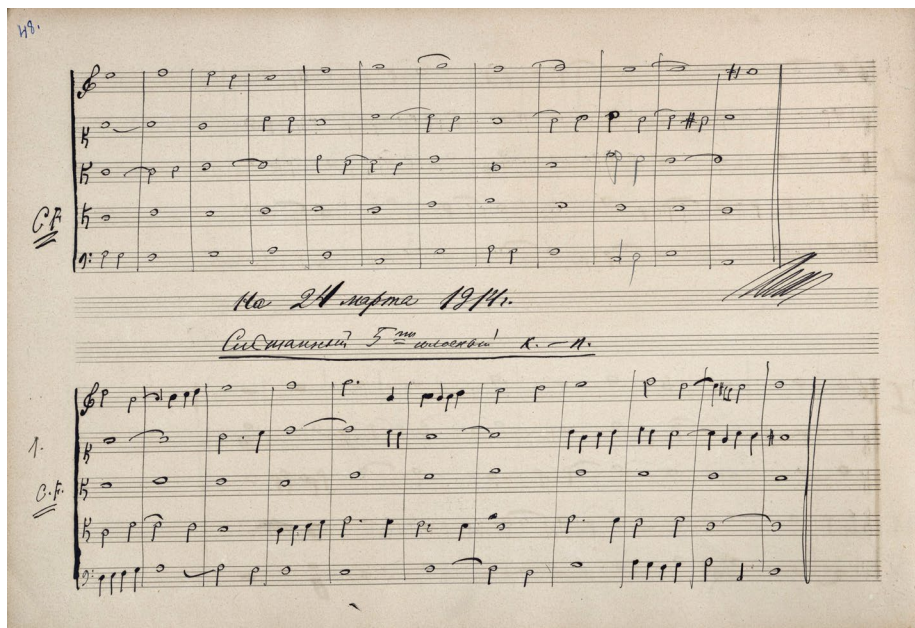 48.
C.F.
На 24 марта 1914 г.
Смешанный 5ти голосный к.-п.
1.
C.F.